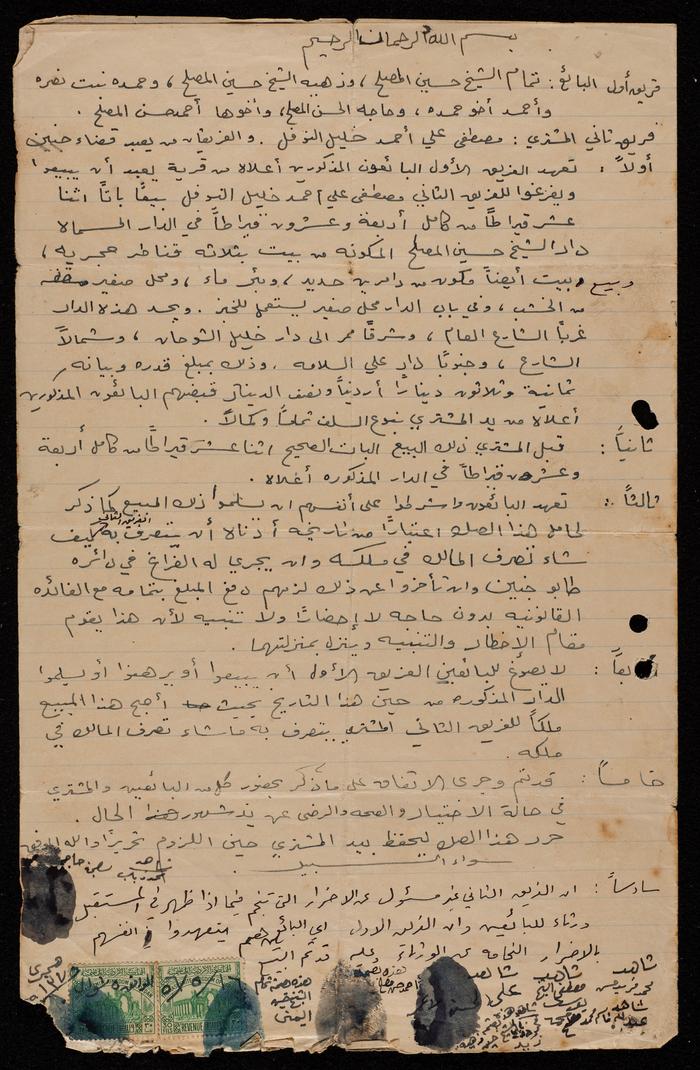 بسم الله الرحمان الرحيم
فريق أول البائع : تمام الشيخ حسين المصلح ، وذهبيه الشيخ حسين المصلح ، وحمده بنت نصره
وأحمد أخو حمده ، وحاجه الحسن المصلح ، وأخوها أحمد حسن المصلح .
فريق ثاني المشتري : مصطفى علي أحمد خليل النوفل . والفريقان من يعبد قضاء جنين
أولاً : تعهد الفريق الأول البائعون المذكورين أعلاه من قرية يعبد أن يبيعوا
ويفرغوا للفريق الثاني مصطفى علي أحمد خليل النوفل بيعاً باتاً اثنا
عشر قيراطاً من كامل أربعة وعشرون قيراطاً في الدار المسماة
دار الشيخ حسين المصلح المكونه من بيت بثلاثه قناطر حجريه ،
وبيت أيضاً مكون من دامرين حديد ، وبئر ماء ، ومحل صغير
من الخشب ، وفي باب الدار محل صغير يستعمل للخبز . ويحد هذه الدار
غرباً الشارع العام ، وشرقاً ممر الى دار خليل الشوحان ، وشمالاً
الشارع ، وجنوباً دار علي السلامه . وذلك بمبلغ قدره وبيانه
ثمانية وثلاثون ديناراً أردنياً ونصف الدينار قبضهم البائعون المذكورين
أعلاه من يد المشتري بنوع السلف تماماً وكمالاً .
ثانياً : قبل المشتري ذلك البيع البات الصحيح اثنا عشر قيراطاً من كامل أربعة
وعشرون قيراطاً في الدار المذكوره أعلاه .
ثالثاً : تعهد البائعون واشترطوا على أنفسهم ان يسلموا ذلك المبيع كما ذكر
لحامل هذا الصك الفريق الثاني اعتباراً من تاريخه أدناه أن يتصرف به كيف
شاء تصرف المالك في ملكه وان يجري له الفراغ في دائرة
طابو جنين وان تأخروا عن ذلك لزمهم دفع المبلغ بتمامه مع الفائده
القانونيه بدون حاجه لا إحضاراً ولا تنبيه لأن هذا يقوم
مقام الإخطار والتنبيه وينزل بمنزلتهما .
رابعاً : لا يصوغ للبائعين الفريق الأول أن يبيعوا أو يرهنوا أو يسلموا
الدار المذكوره من حين هذا التاريخ بحيث أصبح هذا المبيع
ملكاً للفريق الثاني المشتري يتصرف به ما شاء تصرف المالك في
ملكه .
خامساً : قد تم وجرى الاتفاق على ما ذكر بحضور كل من البائعين والمشتري
في حالة الاختيار والصحه والرضى عن يد شهود الحال .
حرر هذا الصك ليحفظ بيد المشتري حين اللزوم تحريراً والله الموفق
سواء السبيل
سادساً : ان الفريق الثاني غير مسئول عن الاضرار التي تنجم فيما اذا ظهر في المستقبل
ورثاء للبائعين وان الفريق الاول اي البائعين يتعهدوا انفسهم
بالاضرار الناجمه عن الورثاء
شاهد
شاهد
شاهد
علي
هذه بصمة تمام
اليمنى
REVENUE
REVENUE